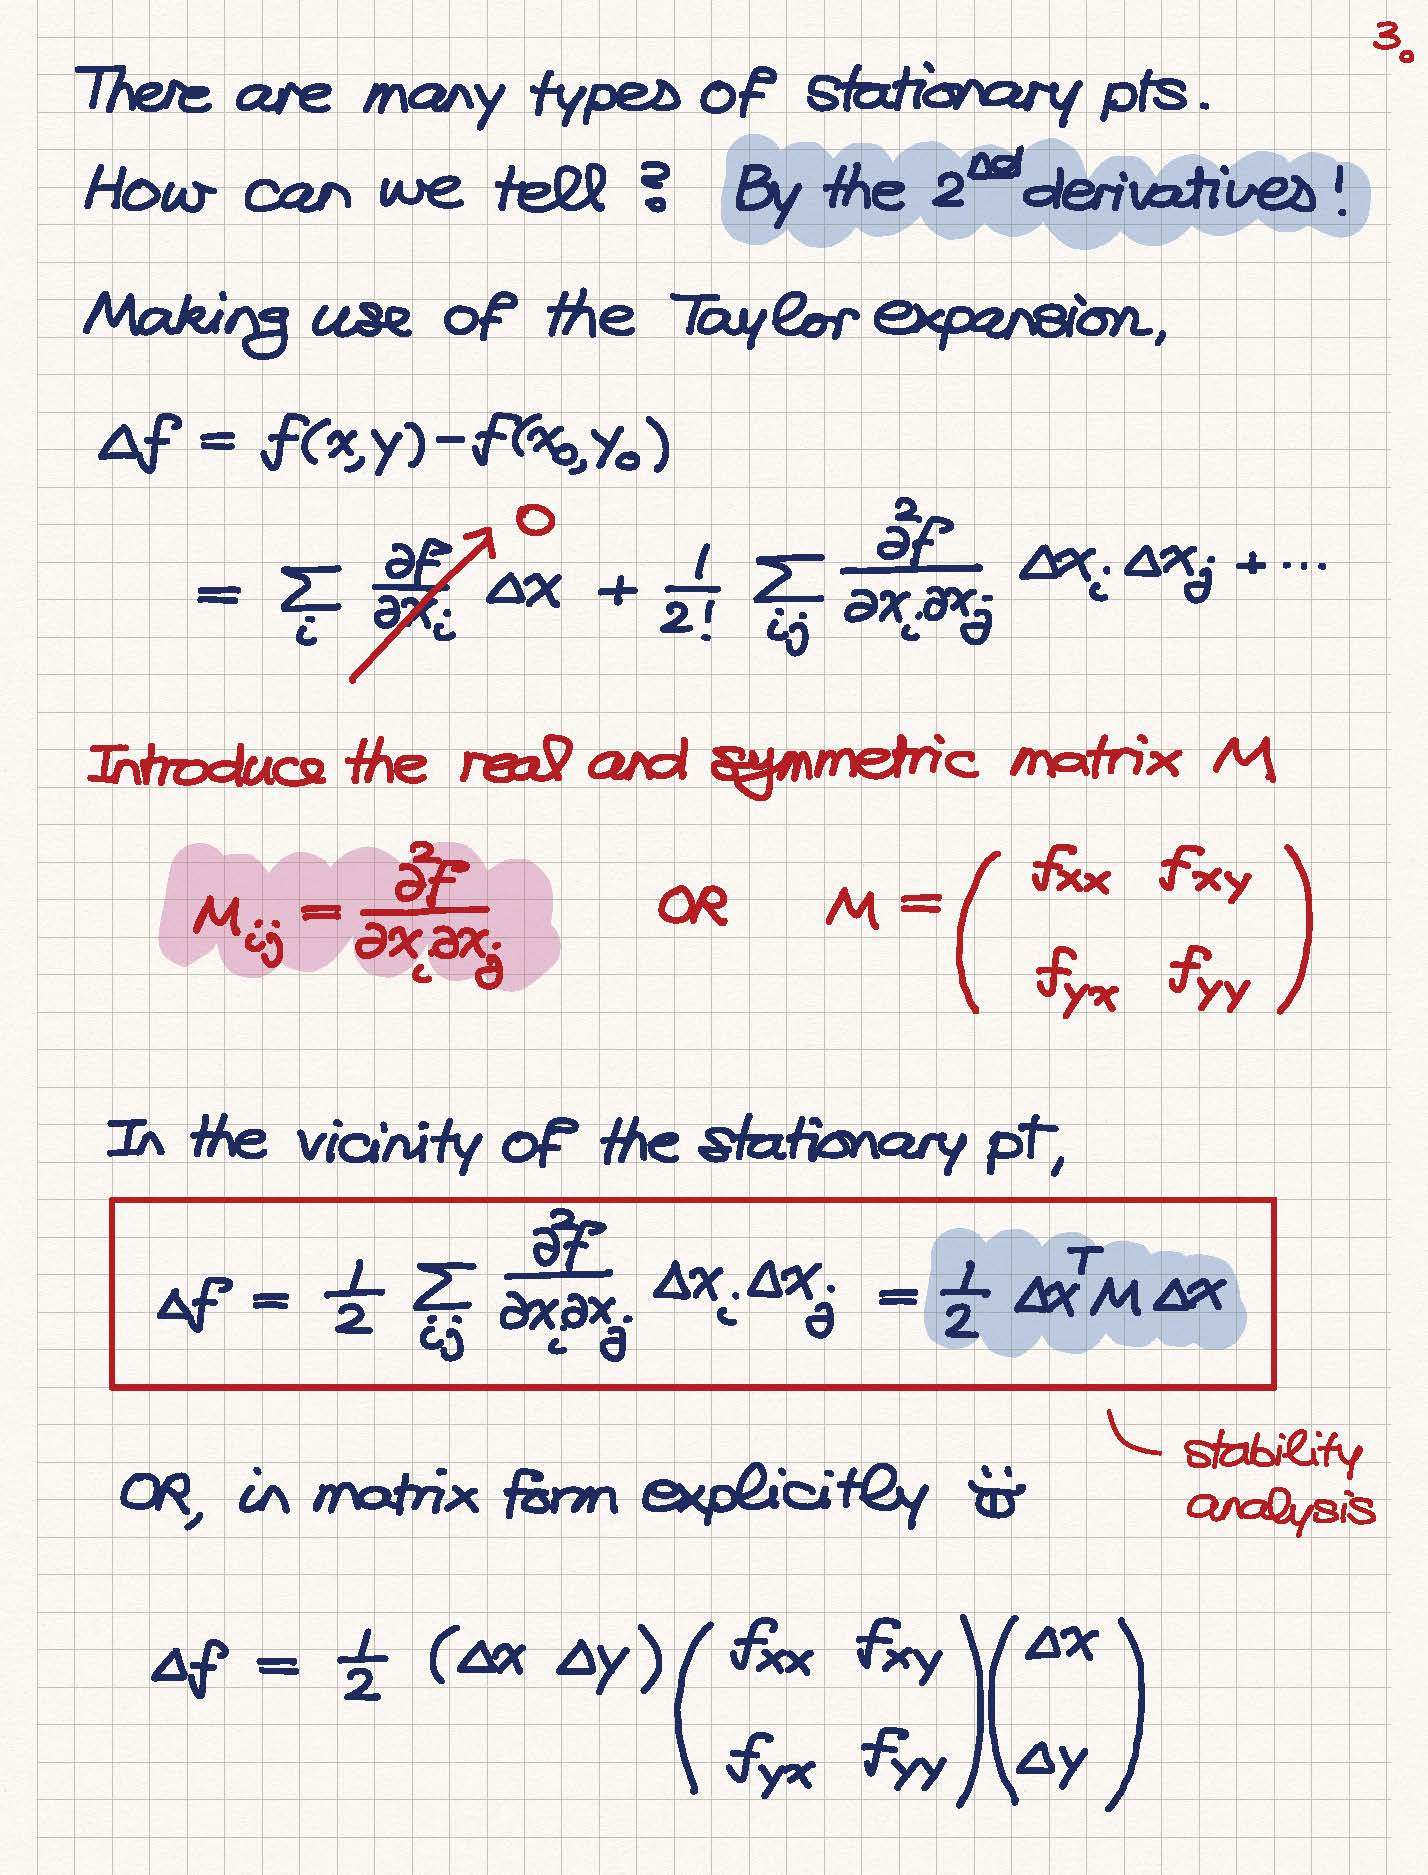 3.
There are many types of stationary pts.
How can we tell? By the 2nd derivatives!
Making use of the Taylor expansion,
Δf = f(x,y) - f(x₀,y₀)
= Σ_i ∂f/∂x_i Δx + 1/2! Σ_ij ∂²f/∂x_i∂x_j Δx_i Δx_j + ...
0
Introduce the real and symmetric matrix M
M_ij = ∂²f/∂x_i∂x_j OR M = ( f_xx f_xy
f_yx f_yy )
In the vicinity of the stationary pt,
Δf = 1/2 Σ_ij ∂²f/∂x_i∂x_j Δx_i Δx_j = 1/2 Δx^T M Δx
stability
analysis
OR, in matrix form explicitly
Δf = 1/2 (Δx Δy) ( f_xx f_xy ) ( Δx )
( f_yx f_yy ) ( Δy )